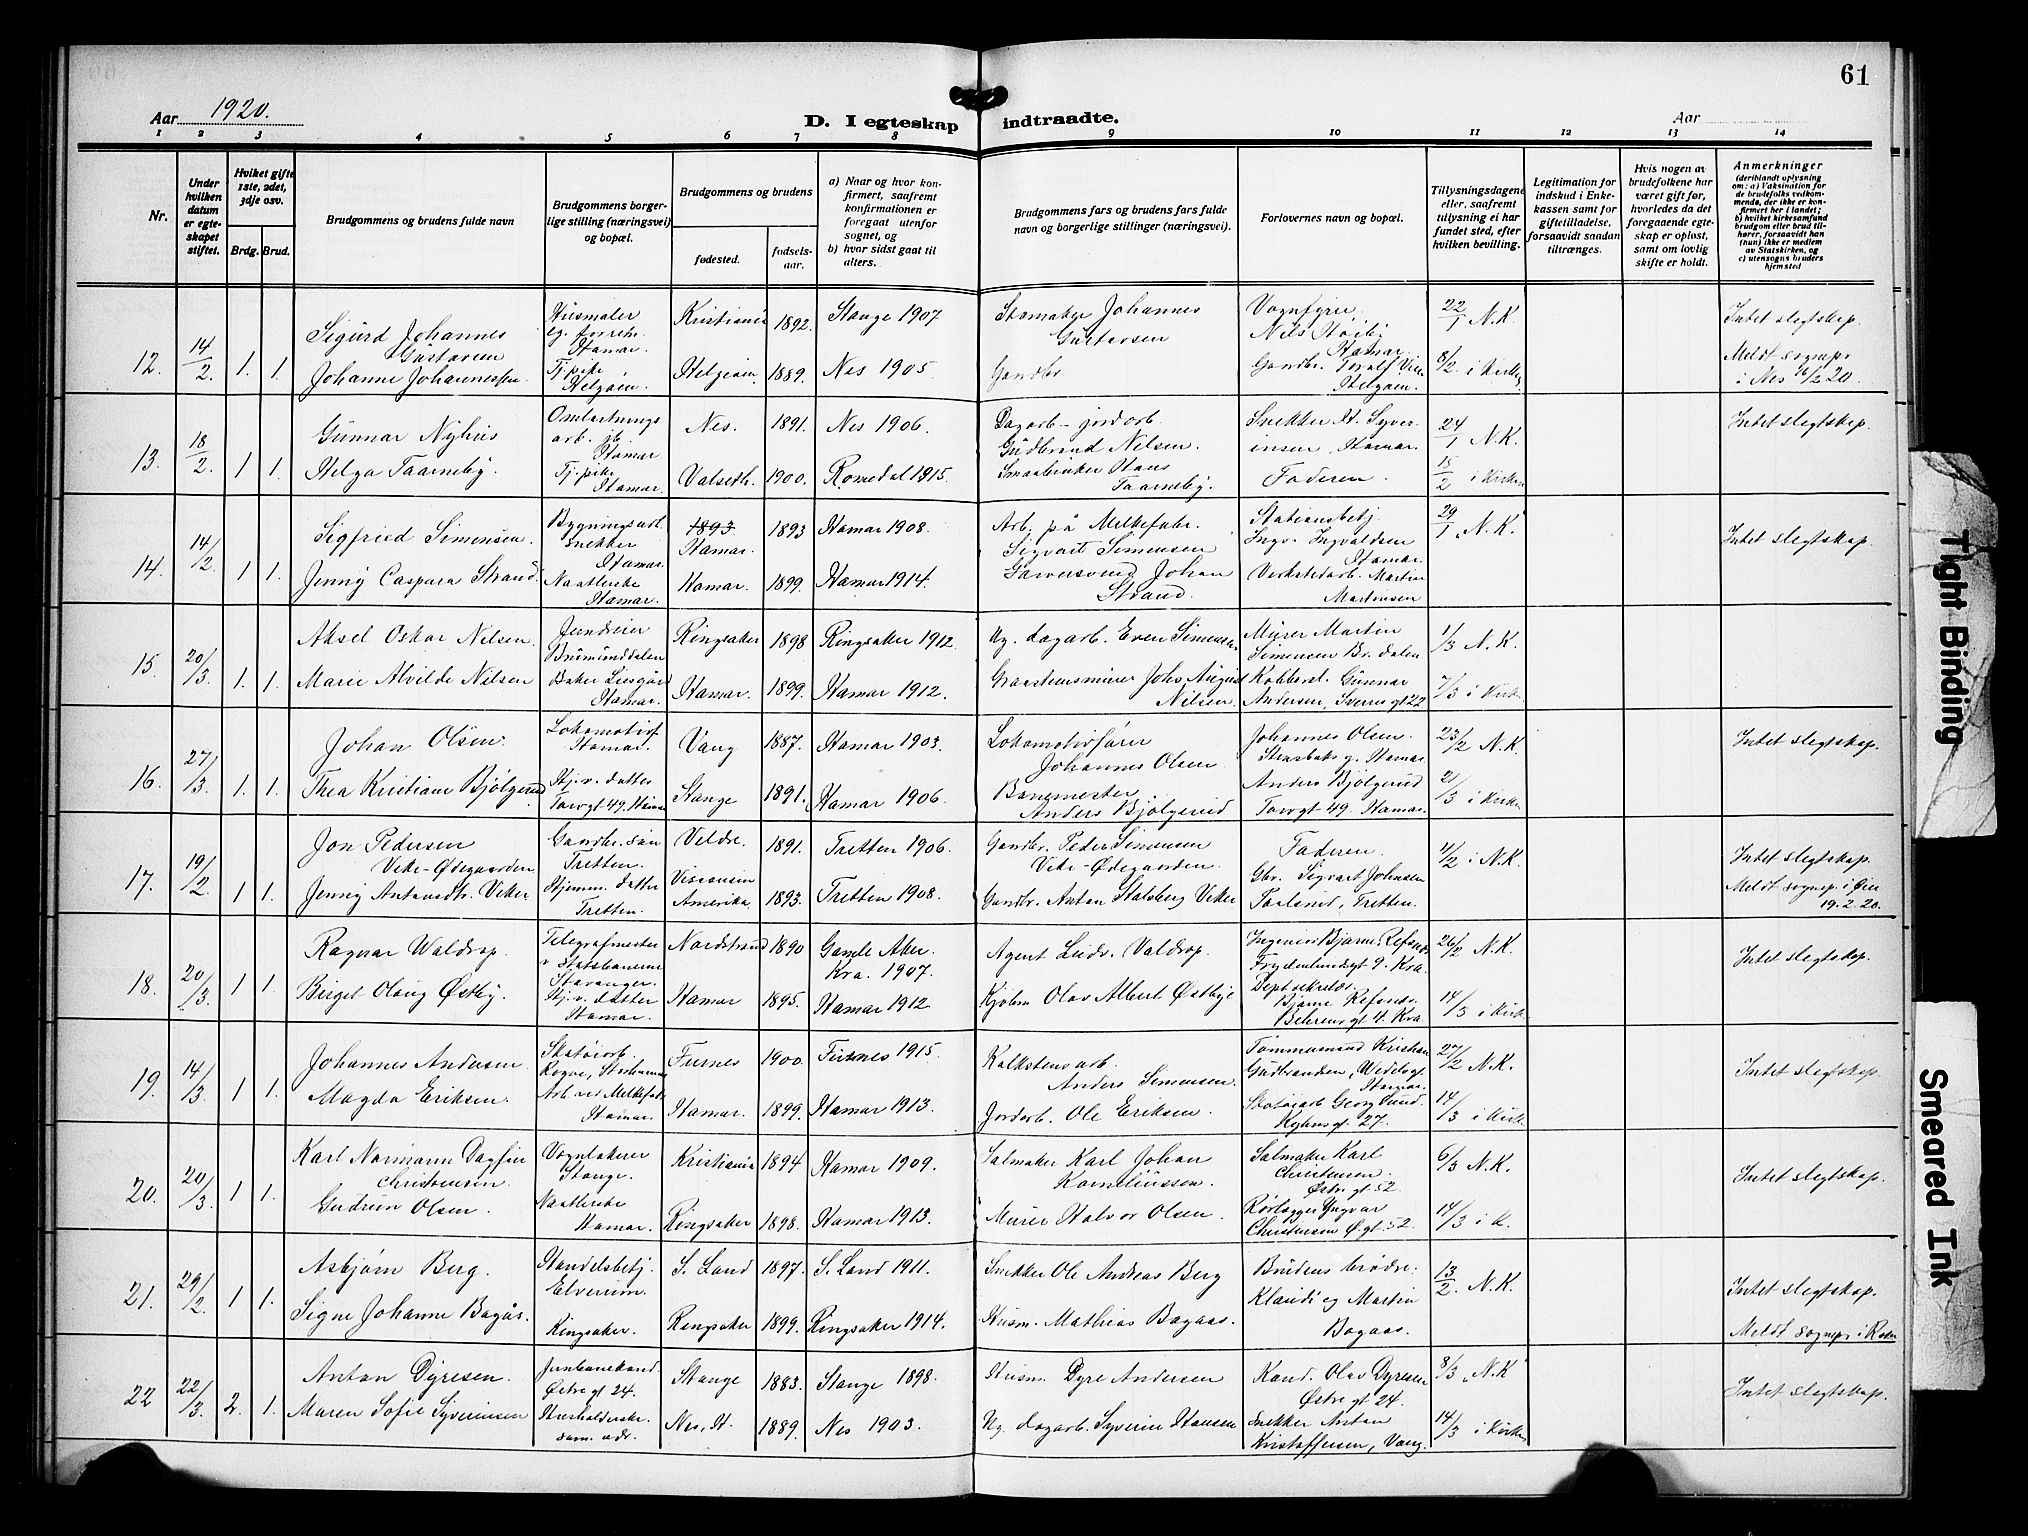 61
Aar 1920.
D. I egteskap indtraadte.
Aar
1 2 3 4 5 6 7 8 9 10 11 12 13 14
Nr.
Under hvilken datum er egteskapet stiftet.
Hvilket gifte 1ste, 2det, 3dje osv.
Brdg. Brud.
Brudgommens og brudens fulde navn
Brudgommens borgerlige stilling (næringsvei) og bopæl.
Brudgommens og brudens
fødested.
fødselsaar.
a) Naar og hvor konfirmert, saafremt konfirmationen er foregaat utenfor sognet, og
b) hvor sidst gaat til alters.
Brudgommens fars og brudens fars fulde navn og borgerlige stillinger (næringsvei).
Forlovernes navn og bopæl.
Tillysningsdagene eller, saafremt tillysning ei har fundet sted, efter hvilken bevilling.
Legitimation for indskud i Enkekassen samt for giftetilladelse, forsaavidt saadan tiltrænges.
Hvis nogen av brudefolkene har været gift før, hvorledes da det foregaaende egteskap er opløst, samt om lovlig skifte er holdt.
Anmerkninger (deriblandt oplysning om: a) Vaksination for de brudefolks vedkommende, der ikke er konfirmert her i landet; b) hvilket kirkesamfund brudgom eller brud tilhører, forsaavidt han (hun) ikke er medlem av Statskirken, og c) utensogns bruders hjemsted
12. 14/2 1. 1.
Sigurd Johannes Gustavsen
Husmaler
Hamar.
Kristiania 1892. Stange 1907
Johannes Gustavsen
Vognfyrer Nils
Hamar.
22/1 N.K.
Intet slegtskap.
Johanne Johannessen
Tj.pike Helgøen.
Helgøen. 1889. Nes 1905
Gaardbr.
Gaardbr.
Helgøen.
8/2 i Kirken
Meldt sognepr. i Nes 16/2 20.
13. 18/2 1 1.
Gunnar Nyhus
arb. Hamar
Nes. 1891. Nes 1906.
Dagarb – jordarb Gudbrand Nilsen.
Snekker H. Syverinsen, Hamar.
24/1 N.K.
Intet slegtskap.
Helga Taarneby.
Tj.pike Hamar.
Valseth. 1900. Romedal 1915.
Smaabruker Hans Taarneby.
Faderen.
15/2 i Kirken
14. 14/2 1 1.
Sigfried Simensen.
Bygningsarb. snekker Hamar.
1893 Hamar. 1893 Hamar 1908.
Arb. på Melkefabr. Sigvart Simensen
Stationsbetj. Ingv. Ingvaldsen Hamar.
29/1 N.K.
Intet slegtskap.
Jenny Caspara Strand
Naatlerske Hamar.
Hamar. 1899. Hamar 1914.
Garversvend Johan Strand.
Verkstedarb. Martin Martinsen
15. 20/3 1. 1.
Aksel Oskar Nilsen.
Brumunddalen
Ringsaker 1898 Ringsaker 1912.
Ng. dagarb. Even Simensen
Murer Martin Simensen Br. dalen
1/3 N.K.
Marie Alvilde Nilsen
Hamar.
Hamar. 1899. Hamar 1912.
Graastensmurer Johs August Nilsen.
Kobbersl. Gunnar Andersen, Sverresgt 22
7/3 i Kirk.
16. 27/3 1. 1.
Johan Olsen.
Lokomotivf. Hamar.
Vang 1887. Hamar 1903.
Lokomotivfører Johannes Olsen
Johannes Olsen. Hamar
23/2 N.K.
Intet slegtskap.
Thea Kristiane Bjølgerud
Hj.v. datter Torvgt 49. Hamar
Stange 1891. Hamar 1906.
Banemester Anders Bjølgerud
Anders Bjølgerud Torvgt 49. Hamar.
21/3 i Kirken
17. 19/2 1 1.
Jon Pedersen Veke-Ødegaarden
Gaardbr. søn Tretten.
Veldre. 1891. Tretten 1906.
Gaardbr. Peder Simensen Veke-Ødegaarden.
Faderen.
4/2 i N.K.
Intet slegtskap.
Jenny Antonsdtr. Veker
Hjemm. datter Tretten.
Visconsin Amerika. 1893. Tretten 1908.
Gaardbr. Anton Stalsberg Veker
Gbr. Sigvart Johnsen Paalsrud, Tretten.
Meldt sognep. i Øier 19.2.20.
18. 20/3 1 1.
Ragnar Waldrop.
Telegrafmester v Statsbanerne Stavanger.
Nordstrand 1890 Gamle Aker. Kra. 1907.
Agent Ludv. Valdrop.
Ingeniør Bjarne Refsnds Frydenlundsgt 9. Kra.
26/2 N.K.
Intet slegtskap.
Birget Olaug Østby.
Hj.v. datter Hamar.
Hamar 1895. Hamar 1912
Kjøbm Olav Albert Østbye
Dept sekretær Bjarne Refsnds. Behrensgt 4. Kra.
14/3 i Kirk.
19. 14/3 1 1.
Johannes Andersen
Skotøiarb.
Furnes 1900. Furnes 1915.
Kalkstensarb. Anders Simensen.
Tømmermand Kristian Gudbrandsen, Wedelsgt Hamar.
27/2 N.K.
Intet slegtskap.
Magda Eriksen.
Arb. ved Melkefab. Hamar.
Hamar. 1899. Hamar 1913.
Jordarb. Ole Eriksen.
Skotøiarb Georg Lund. 27.
14/3 i Kirk
20. 20/3 1 1.
Karl Normann Dagfin Christensen.
Vognlakerer Stange.
Kristiania 1894 Hamar 1909.
Salmaker Karl Johan Kornelïussen.
Salmaker Karl Christensen. Østre gt 52.
6/3 N.K.
Intet slegtskap.
Gudrun Olsen.
Naatlerske Hamar.
Ringsaker 1898. Hamar 1913.
Murer Halvor Olsen.
Rørlægger Yngvar Christensen Ø.gt. 52.
14/3 i K.
21. 29/2 1 1.
Asbjørn Berg.
Handelsbetj. Elverum.
S. Land 1897. S. Land 1911.
Snekker Ole Andreas Berg
Brudens brødre.
13/2 N.K.
Intet slegtskap.
Signe Johanne Bagås.
Ringsaker.
Ringsaker 1899. Ringsaker 1914.
Husm. Mathias Bagaas.
Klaus og Martin Bagaas.
Meldt sognepr. i
22 22/3 2. 1.
Anton Dyresen.
Østre gt 24.
Stange 1883. Stange 1898.
Husm. Dyre Andersen
Kand. Olav Dyresen Østre gt 24.
8/3 N.K
Intet slegtskap.
Maren Sofie Syverinsen
Husholderske. sam. adr.
Nes, H. 1889. Nes 1903.
Ng dagarb. Syverin Hansen
Snekker Anton Kristoffersen, Vang.
14/3 i Kirken
Tight Binding
Smeared Ink